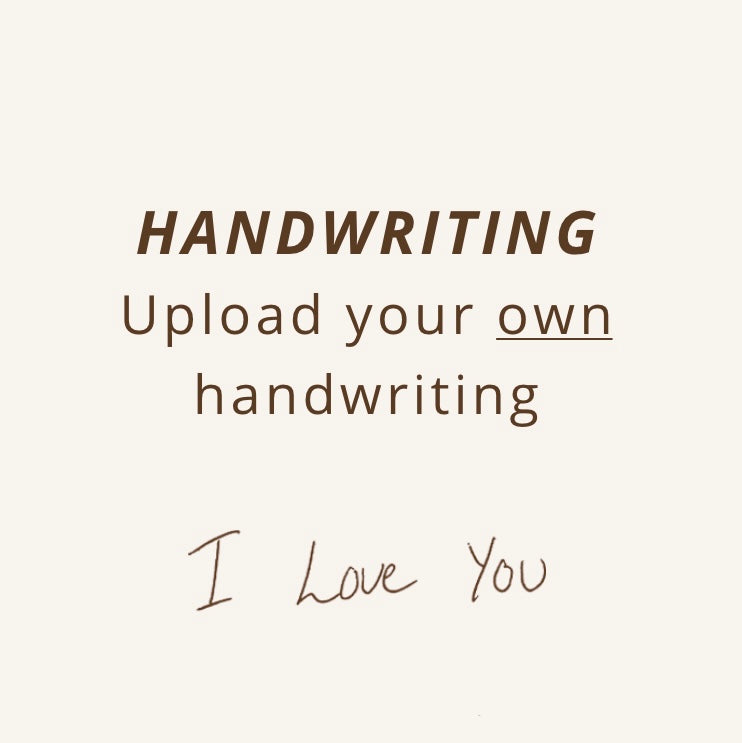 HANDWRITING
Upload your own
handwriting
I Love You